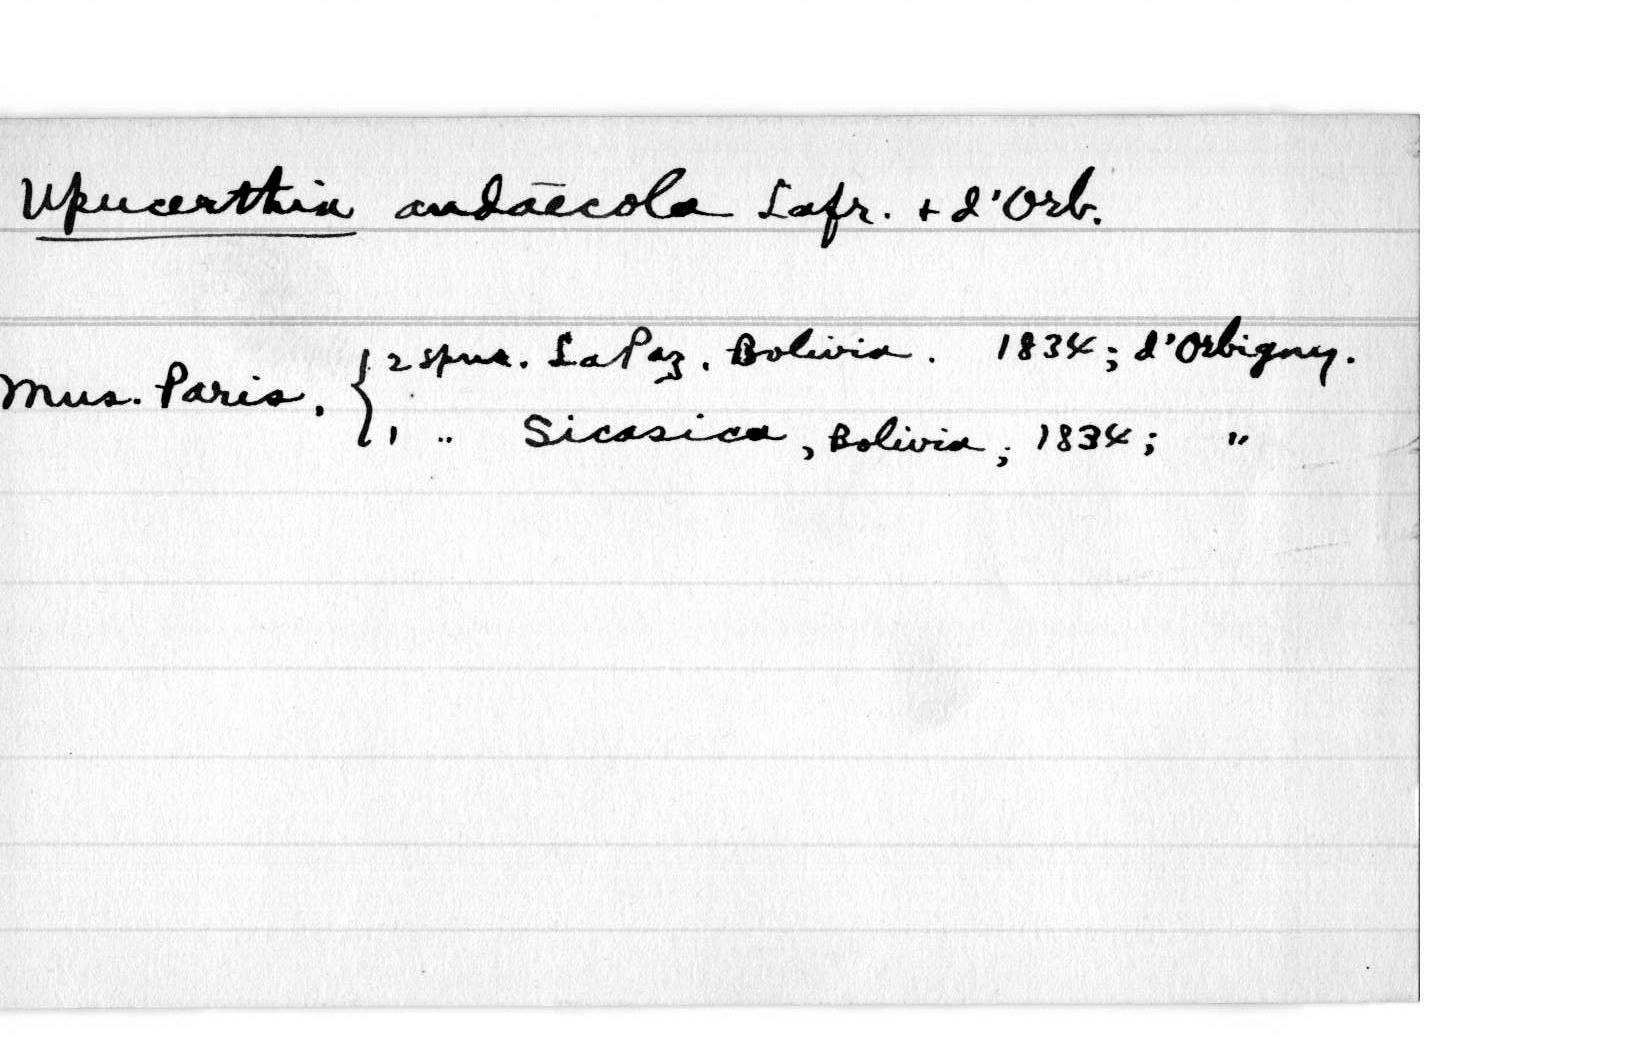 Upucerthia andāecola Lafr. + d'Orb.
Mus. Paris, { 2 spns. La Paz, Bolivia. 1834; d'Orbigny.
1 " Sicasica, Bolivia; 1834; "